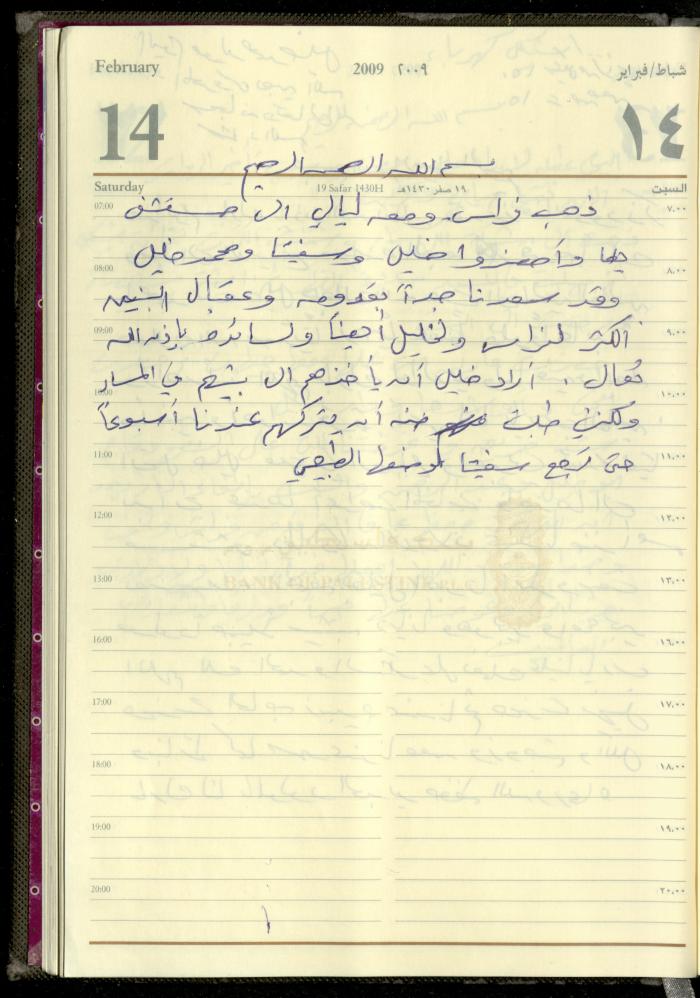 February 2009 ٢٠٠٩ شباط/فبراير
14 ١٤
بسم الله الرحمن الرحيم
Saturday 19 Safar 1430H ١٩ صفر ١٤٣٠هـ السبت
07:00 ذهب فراس ومعه ليال الى مستشفى ٧,٠٠
يافا وأحضروا خليل وسفيتا ومحمد خليل
08:00 ٨,٠٠
وقد سعدنا جداً بقدومه وعقبال البنيه
09:00 الكثر لفراس ولخليل أيضاً ولسائده بإذن الله ٩,٠٠
تعالى . أراد خليل أن يأخذهم الى بيتهم في المساء
10:00 ١٠,٠٠
ولكنني طلبت منه أن يتركهم عندنا أسبوعاً
11:00 حتى ترجع سفيتا لوضعها الطبيعي ١١,٠٠
12:00 ١٢,٠٠
BANK OF PALESTINE P.L.C
13:00 ١٣,٠٠
16:00 ١٦,٠٠
17:00 ١٧,٠٠
18:00 ١٨,٠٠
19:00 ١٩,٠٠
20:00 ٢٠,٠٠